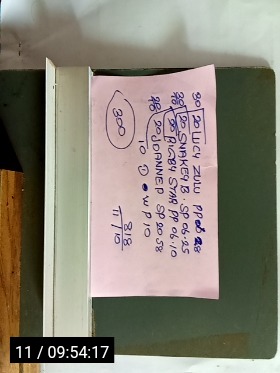 30 20 LUCY ZULU PP 28
38 20 SNAKEYB. SP 06.25
78 20 RIGBY STAR PP 06.10
78 20 JOANNE P. SP 20 58
10 D W P 10
300
818
11/10
11 / 09:54:17